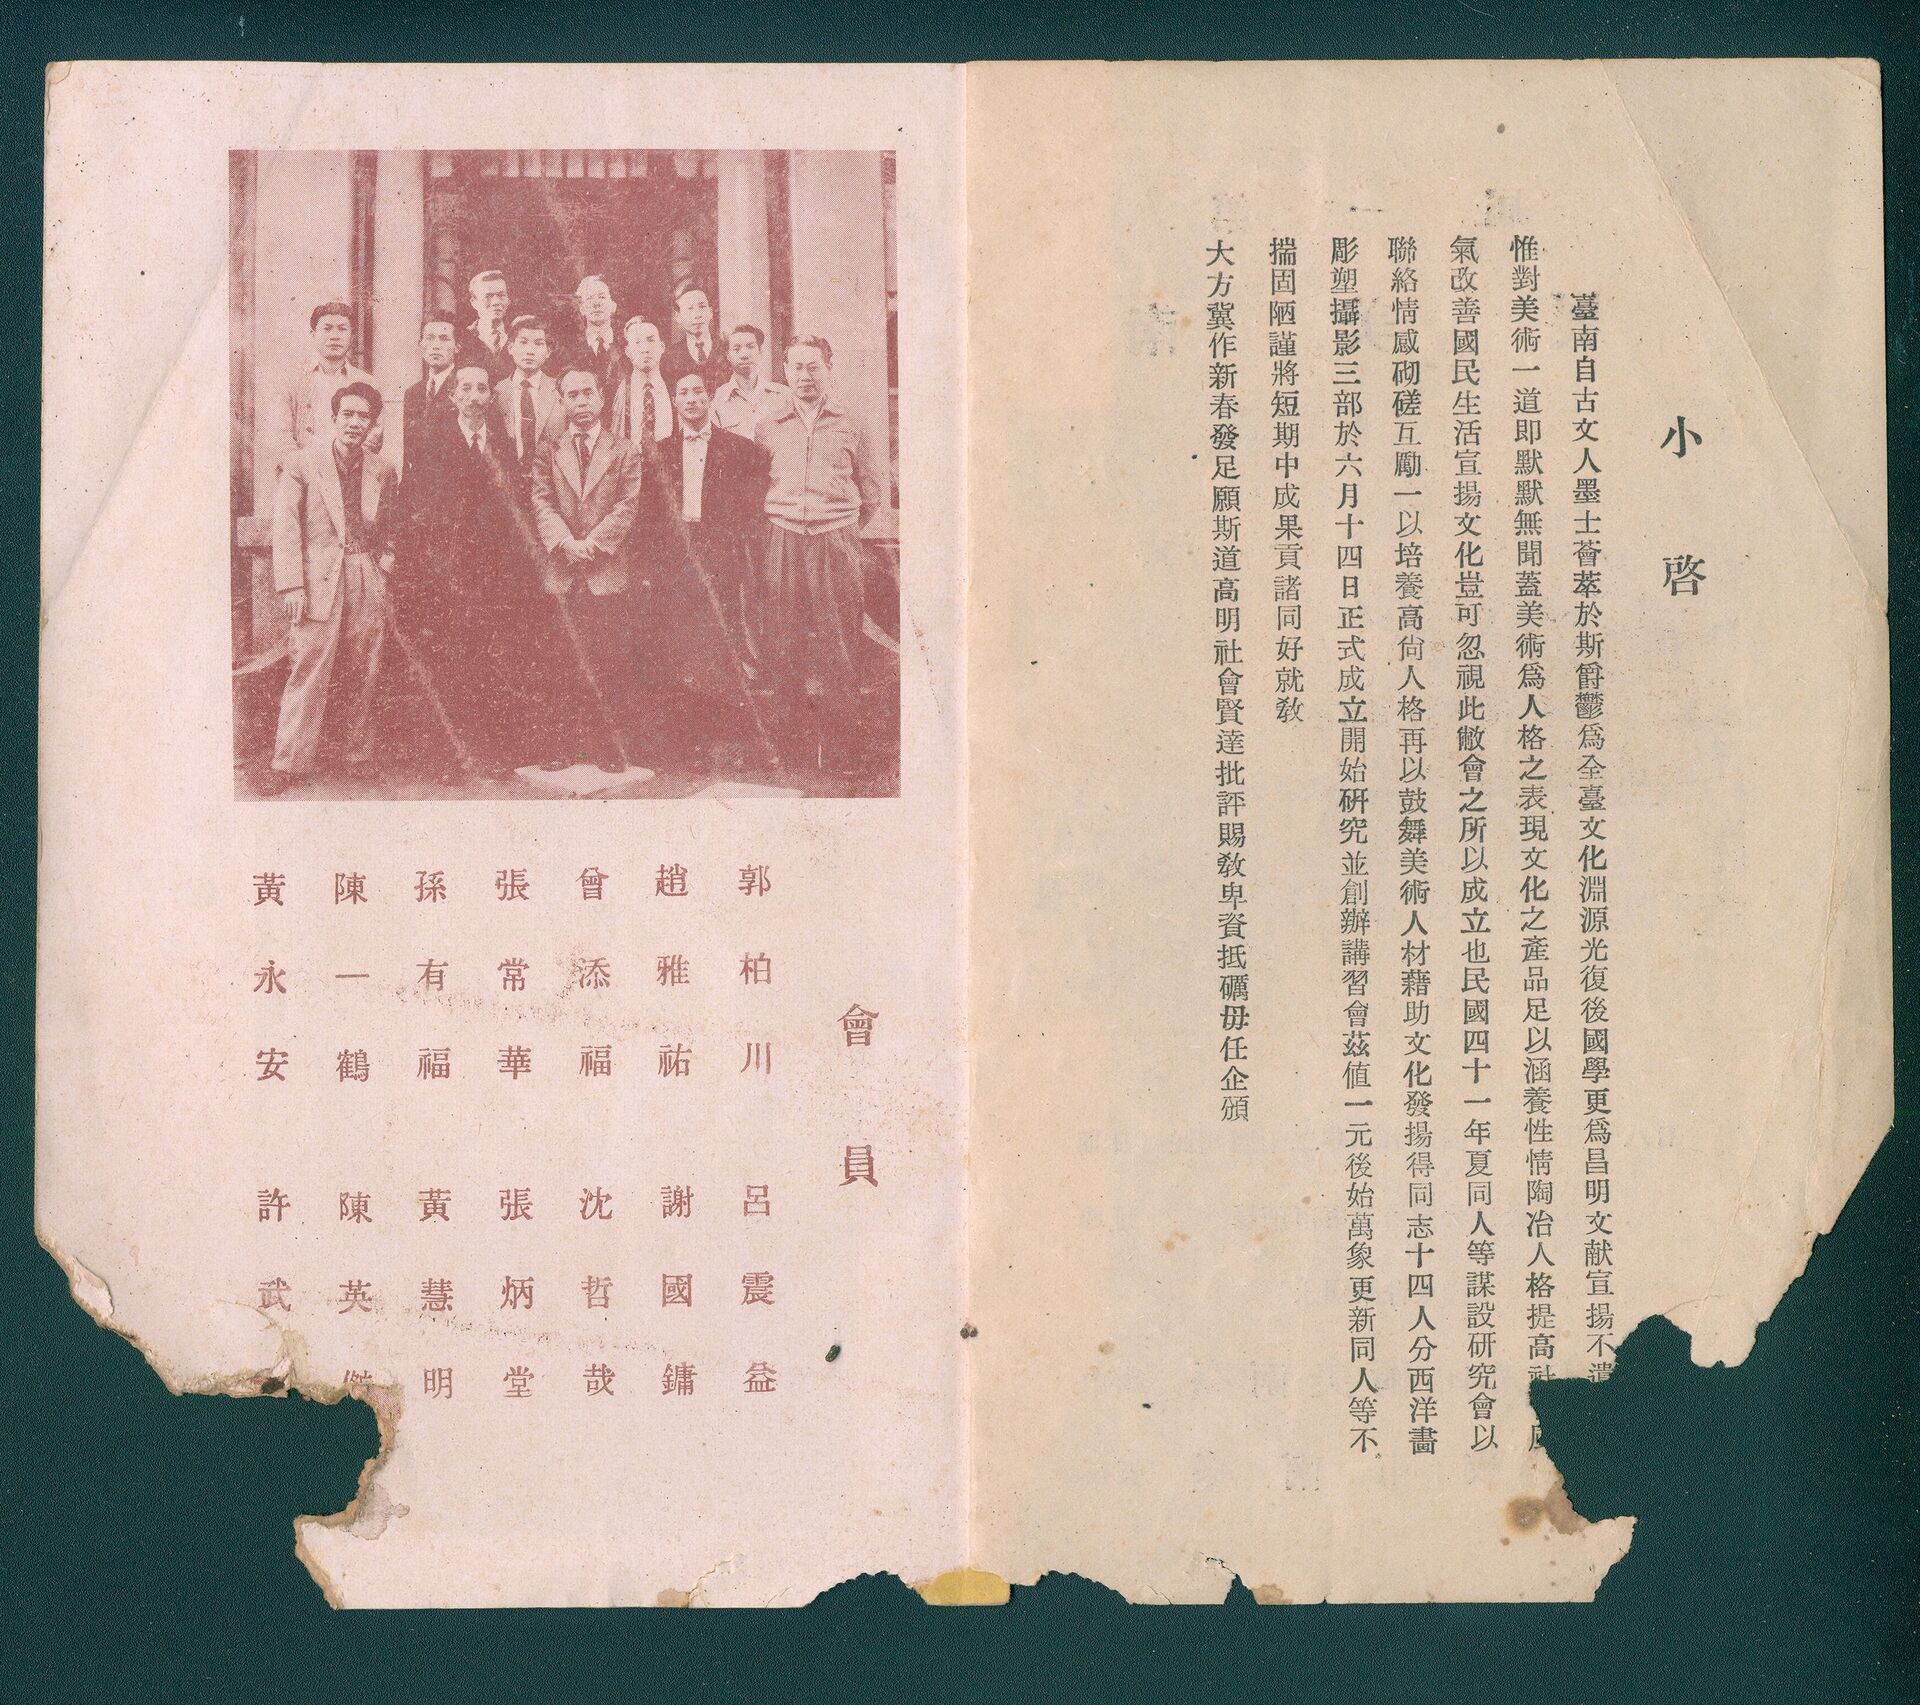 小啓
臺南自古文人墨士薈萃於斯爵鬱爲全臺文化淵源光復後國學更爲昌明文献宣揚不遺
惟對美術一道即默默無聞蓋美術爲人格之表現文化之產品足以涵養性情陶冶人格提高社
氣改善國民生活宣揚文化豈可忽視此敝會之所以成立也民國四十一年夏同人等謀設研究會以
聯絡情感砌磋互勵一以培養高尙人格再以鼓舞美術人材藉助文化發揚得同志十四人分西洋畵
彫塑攝影三部於六月十四日正式成立開始硏究並創辦講習會茲值一元後始萬象更新同人等不
揣固陋謹將短期中成果貢諸同好就敎
大方冀作新春發足願斯道高明社會賢達批評賜敎卑資抵礪毋任企頒
會員
郭柏川 呂震益
趙雅祐 謝國鏞
曾添福 沈哲哉
張常華 張炳堂
孫有福 黃慧明
陳一鶴 陳英傑
黃永安 許武